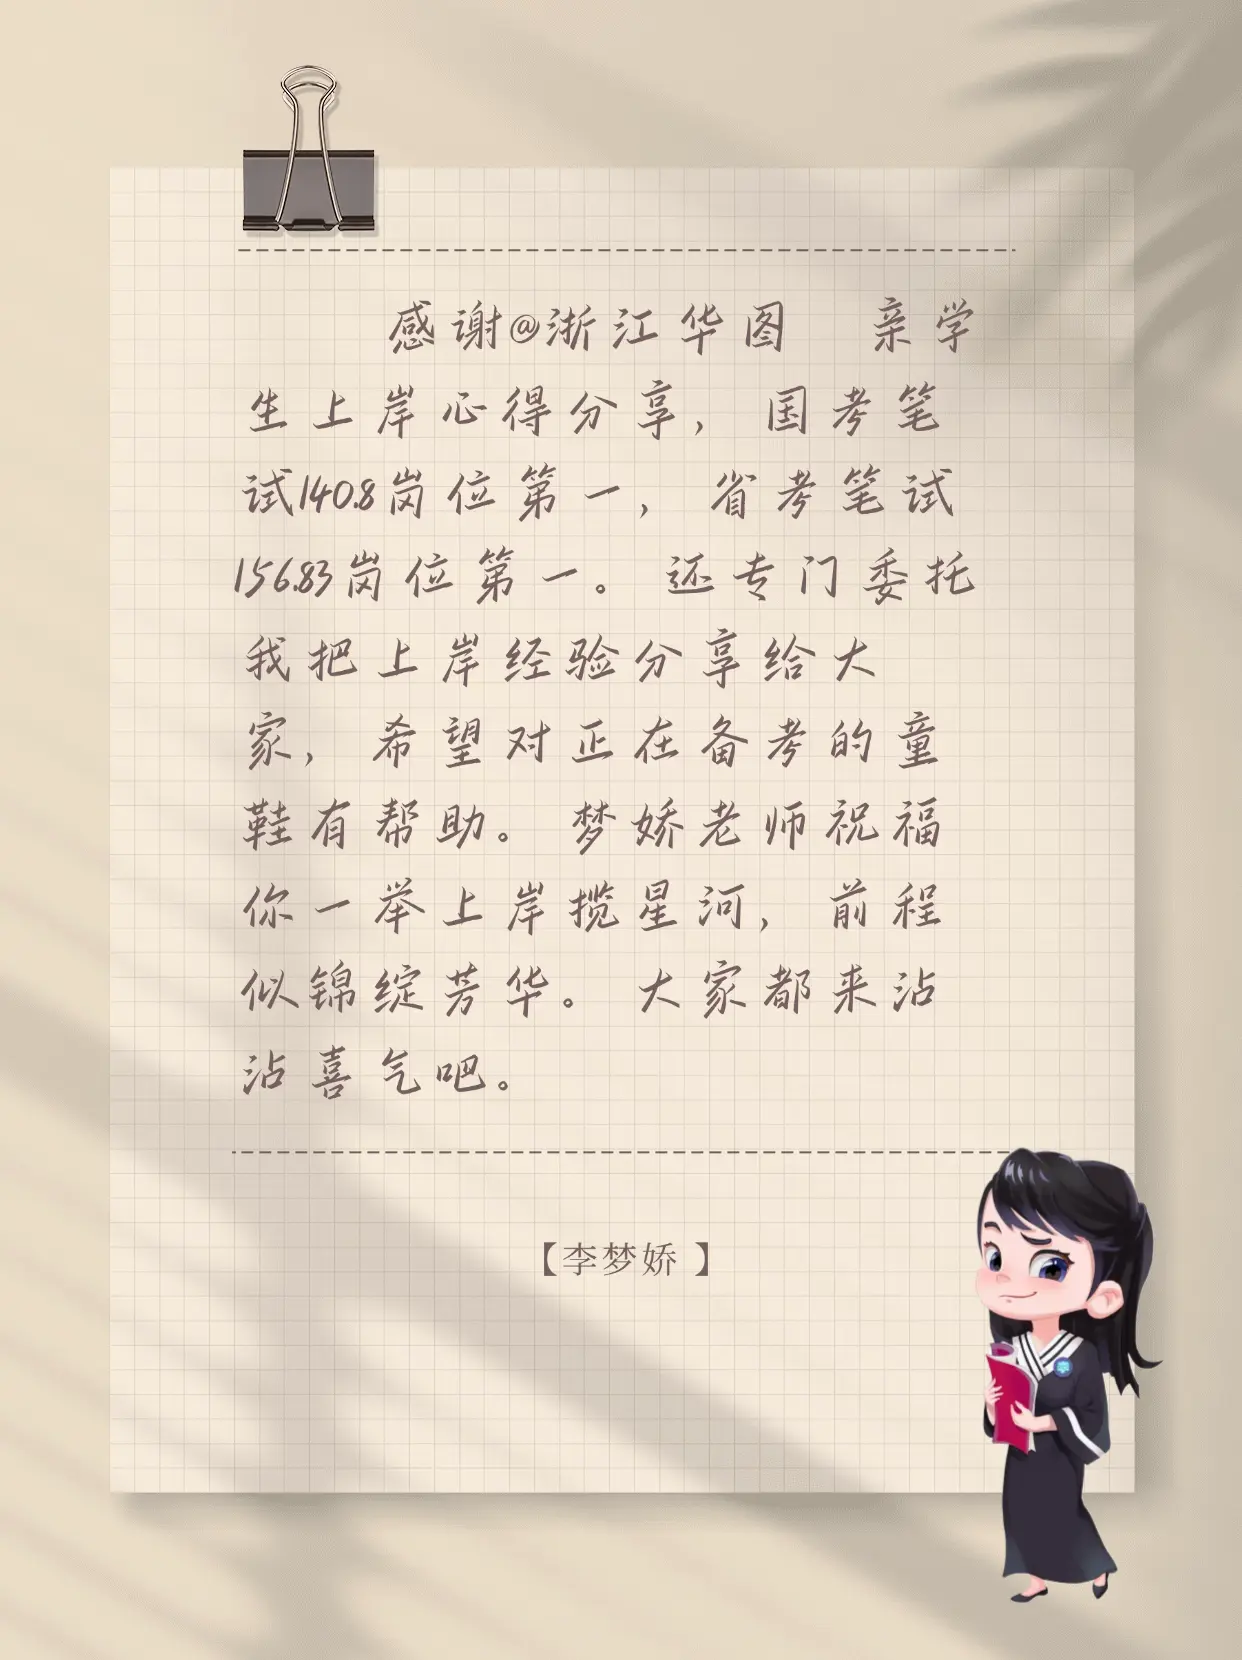 感谢@浙江华图 亲学
生上岸心得分享，国考笔
试140.8岗位第一，省考笔试
156.83岗位第一。还专门委托
我把上岸经验分享给大
家，希望对正在备考的童
鞋有帮助。梦娇老师祝福
你一举上岸揽星河，前程
似锦绽芳华。大家都来沾
沾喜气吧。
【李梦娇 】